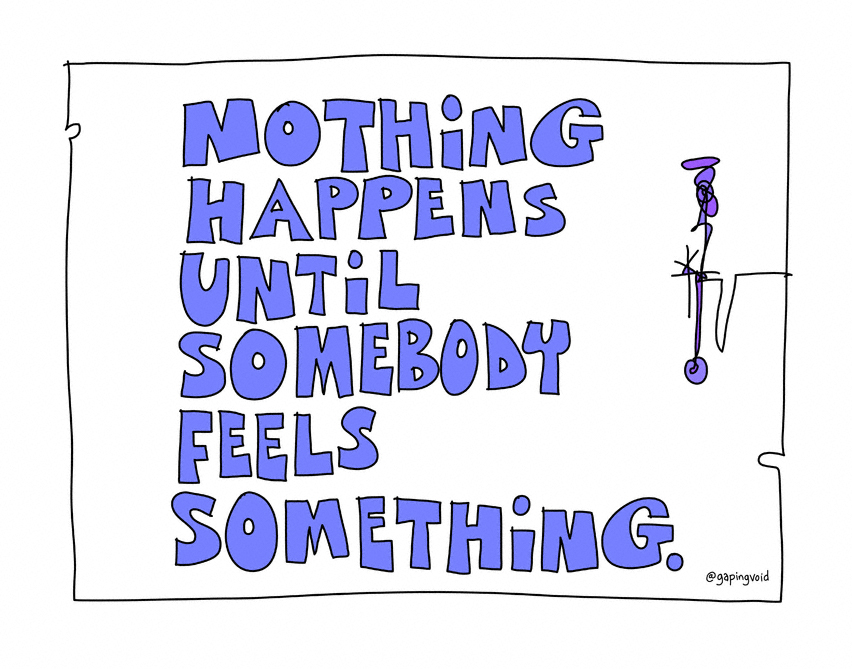 NOTHiNG
HAPPENS
UNTiL
SOMEBODY
FEELS
SOMETHiNG.
@gapingvoid